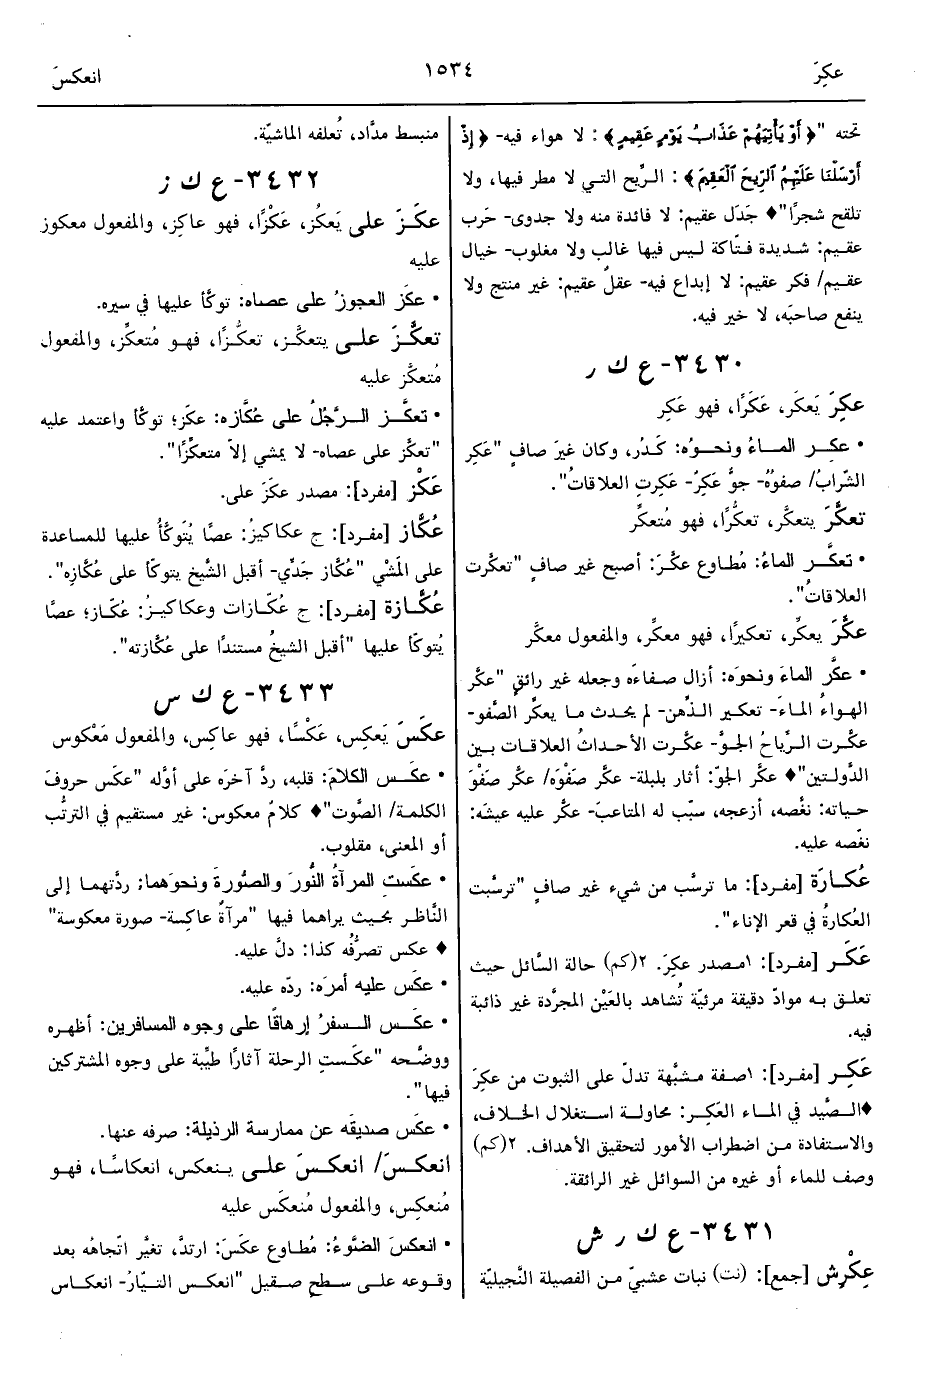 عكِرَ
١٥٣٤
انعكسَ
تحته "﴿أَوْ يَأْتِيَهُمْ عَذَابُ يَوْمٍ عَقِيمٍ﴾: لا هواء فيه- ﴿إِذْ
أَرْسَلْنَا عَلَيْهِمُ الرِّيحَ الْعَقِيمَ﴾: الرِّيح التي لا مطر فيها، ولا
تلقح شجرًا"♦ جَدَل عقيم: لا فائدة منه ولا جدوى- حَرب
عقيم: شديدة فتّاكة ليس فيها غالب ولا مغلوب- خيال
عقيم/ فكر عقيم: لا إبداع فيه- عقلٌ عقيم: غير منتج ولا
ينفع صاحبَه، لا خير فيه.
٣٤٣٠- ع ك ر
عكِرَ يَعكَر، عَكَرًا، فهو عَكِر
• عكِر الماءُ ونحوُه: كَدُر، وكان غيرَ صافٍ "عَكِر
الشّرابُ/ صفوُه- جوٌّ عَكِرٌ- عَكِرتِ العلاقاتُ".
تعكَّرَ يتعكَّر، تعكُّرًا، فهو مُتعكِّر
• تعكَّر الماءُ: مُطاوع عكَّرَ: أصبح غير صافٍ "تعكّرت
العلاقاتُ".
عكَّرَ يعكِّر، تعكيرًا، فهو معكِّر، والمفعول معكَّر
• عكَّر الماءَ ونحوَه: أزال صفاءَه وجعله غير رائقٍ "عكَّر
الهواءُ الماءَ- تعكير الذِّهن- لم يحدث ما يعكِّر الصَّفو-
عكّرت الرِّياحُ الجوَّ- عكّرت الأحداثُ العلاقات بين
الدَّولتين"♦ عكَّر الجوَّ: أثار بلبلة- عكَّر صفْوَه/ عكَّر صَفْوَ
حياته: نغَّصه، أزعجه، سبّب له المتاعبَ- عكَّر عليه عيشَه:
نغّصه عليه.
عُكارَة [مفرد]: ما ترسَّب من شيء غير صافٍ "ترسَّبت
العُكارةُ في قعر الإناء".
عَكَر [مفرد]: ١مصدر عكِرَ. ٢(كم) حالة السَّائل حيث
تعلق به موادّ دقيقة مرئيّة تُشاهد بالعَيْن المجرَّدة غير ذائبة
فيه.
عَكِر [مفرد]: ١صفة مشبَّهة تدلّ على الثبوت من عكِرَ
♦الصَّيد في الماء العَكِر: محاولة استغلال الخلاف،
والاستفادة من اضطراب الأمور لتحقيق الأهداف. ٢(كم)
وصف للماء أو غيره من السوائل غير الرائقة.
٣٤٣١- ع ك ر ش
عِكْرِش [جمع]: (نت) نبات عشبيّ من الفصيلة النَّجيليّة
منبسط مدَّاد، تُعلفه الماشيّة.
٣٤٣٢- ع ك ز
عكَزَ على يَعكُز، عَكْزًا، فهو عاكِز، والمفعول معكوز
عليه
• عكَز العجوزُ على عصاه: توكّأ عليها في سيره.
تعكَّزَ على يتعكَّز، تعكُّزًا، فهو مُتعكِّز، والمفعول
مُتعكَّز عليه
• تعكَّز الرَّجُلُ على عُكَّازه: عكَز؛ توكّأ واعتمد عليه
"تعكَّز على عصاه- لا يمشي إلاّ متعكِّزًا".
عَكْز [مفرد]: مصدر عكَزَ على.
عُكَّاز [مفرد]: ج عكاكيزُ: عصًا يُتَوكّأُ عليها للمساعدة
على المَشْي "عُكَّاز جَدِّي- أقبل الشَّيخ يتوكّأ على عُكَّازِه".
عُكَّازة [مفرد]: ج عُكّازات وعكاكيزُ: عُكّاز؛ عصًا
يُتوكّأ عليها "أقبل الشيخُ مستندًا على عكّازته".
٣٤٣٣- ع ك س
عكَسَ يَعكِس، عَكْسًا، فهو عاكِس، والمفعول مَعْكوس
• عكَس الكلامَ: قلبه، ردَّ آخرَه على أوَّله "عكَس حروفَ
الكلمة/ الصَّوت"♦ كلامٌ معكوس: غير مستقيم في الترتُّب
أو المعنى، مقلوب.
• عكَست المرآةُ النُّورَ والصُّورةَ ونحوَهما: ردَّتهما إلى
النَّاظر بحيث يراهما فيها "مرآةٌ عاكِسة- صورة معكوسة"
♦ عكس تصرُّفُه كذا: دلَّ عليه.
• عكَس عليه أمرَه: ردّه عليه.
• عكَس السفرُ إرهاقًا على وجوه المسافرين: أظهره
ووضَّحه "عكَستِ الرحلة آثارًا طيِّبة على وجوه المشتركين
فيها".
• عكَس صديقَه عن ممارسة الرذيلة: صرفه عنها.
انعكسَ/ انعكسَ على ينعكس، انعكاسًا، فهو
مُنعكِس، والمفعول مُنعكَس عليه
• انعكسَ الضَّوءُ: مُطاوع عكَسَ: ارتدَّ، تغيَّر اتّجاهُه بعد
وقوعه على سطح صقيل "انعكس التيّارُ- انعكاس